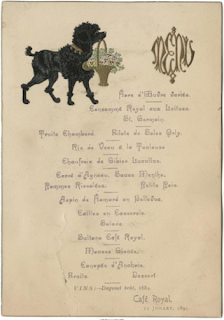 MENU
Consommé Royal aux Huîtres
St. Germain
Truite Chambord. Filets de Soles Orly.
Ris de Veau à la Toulouse
Chaufroix de Gibier
Carré d'Agneau, Sauce Menthe.
Pommes Petits Pois.
Aspic de Homard en Bellevue.
Cailles en Casserole.
Salade
Sultane Café Royal.
Mousse Glacée
Canapés d'Anchois.
Fruits Dessert
VINS:
Café Royal,